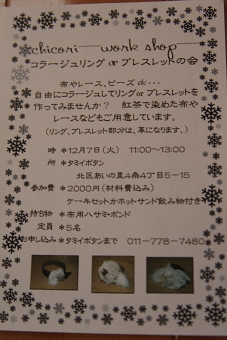 chicori work shop
コラージュリング or ブレスレットの会
布やレース、ビーズ etc...
自由にコラージュしてリング or ブレスレットを
作ってみませんか？ 紅茶で染めた布や
レースなどもご用意しています。
(リング、ブレスレット部分は、革になります。)
時 * 12月7日(火) 11:00～13:00
所 * タミイボタン
北区あいの里4条4丁目5-15
参加費 * 2000円(材料費込み)
ケーキセットかホットサンド飲み物付き
持ち物 * 布用ハサミ・ボンド
定員 * 5名
お申し込み * タミイボタンまで 011-778-7480